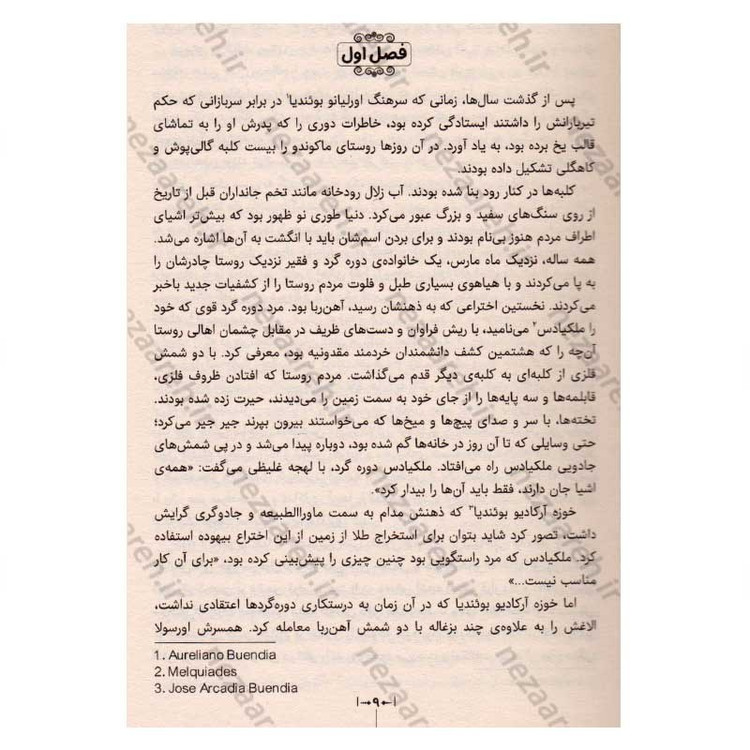 فصل اول
پس از گذشت سال‌ها، زمانی که سرهنگ اورلیانو بوئندیا۱ در برابر سربازانی که حکم
تیربارانش را داشتند ایستادگی کرده بود، خاطرات دوری را که پدرش او را به تماشای
قالب یخ برده بود، به یاد آورد. در آن روزها روستای ماکوندو را بیست کلبه گالی‌پوش و
کاهگلی تشکیل داده بودند.
کلبه‌ها در کنار رود بنا شده بودند. آب زلال رودخانه مانند تخم جانداران قبل از تاریخ
از روی سنگ‌های سفید و بزرگ عبور می‌کرد. دنیا طوری نو ظهور بود که بیش‌تر اشیای
اطراف مردم هنوز بی‌نام بودند و برای بردن اسم‌شان باید با انگشت به آن‌ها اشاره می‌شد.
همه ساله، نزدیک ماه مارس، یک خانواده‌ی دوره گرد و فقیر نزدیک روستا چادرشان را
به پا می‌کردند و با هیاهوی بسیاری طبل و فلوت مردم روستا را از کشفیات جدید باخبر
می‌کردند. نخستین اختراعی که به ذهنشان رسید، آهن‌ربا بود. مرد دوره گرد قوی که خود
را ملکیادس۲ می‌نامید، با ریش فراوان و دست‌های ظریف در مقابل چشمان اهالی روستا
آن‌چه را که هشتمین کشف دانشمندان خردمند مقدونیه بود، معرفی کرد. با دو شمش
فلزی از کلبه‌ای به کلبه‌ی دیگر قدم می‌گذاشت. مردم روستا که افتادن ظروف فلزی،
قابلمه‌ها و سه پایه‌ها را از جای خود به سمت زمین را می‌دیدند، حیرت زده شده بودند.
تخته‌ها، با سر و صدای پیچ‌ها و میخ‌ها که می‌خواستند بیرون بپرند جیر جیر می‌کرد؛
حتی وسایلی که تا آن روز در خانه‌ها گم شده بود، دوباره پیدا می‌شد و در پی شمش‌های
جادویی ملکیادس راه می‌افتاد. ملکیادس دوره گرد، با لهجه غلیظی می‌گفت: «همه‌ی
اشیا جان دارند، فقط باید آن‌ها را بیدار کرد».
خوزه آرکادیو بوئندیا۳ که ذهنش مدام به سمت ماوراالطبیعه و جادوگری گرایش
داشت، تصور کرد شاید بتوان برای استخراج طلا از زمین از این اختراع بیهوده استفاده
کرد. ملکیادس که مرد راستگویی بود چنین چیزی را پیش‌بینی کرده بود، «برای آن کار
مناسب نیست...»
اما خوزه آرکادیو بوئندیا که در آن زمان به درستکاری دوره‌گردها اعتقادی نداشت،
الاغش را به علاوه‌ی چند بزغاله با دو شمش آهن‌ربا معامله کرد. همسرش اورسولا
1. Aureliano Buendia
2. Melquiades
3. Jose Arcadia Buendia
۹
nezaareh.ir